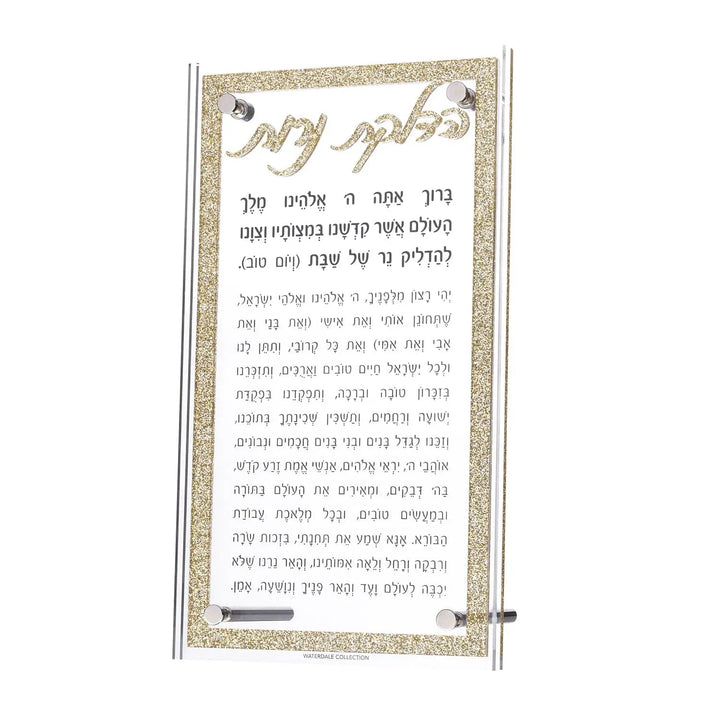 הדלקת נרות
בָּרוּךְ אַתָּה ה' אֱלֹהֵינוּ מֶלֶךְ
הָעוֹלָם אֲשֶׁר קִדְּשָׁנוּ בְּמִצְוֹתָיו וְצִוָּנוּ
לְהַדְלִיק נֵר שֶׁל שַׁבָּת (וְיוֹם טוֹב).
יְהִי רָצוֹן מִלְּפָנֶיךָ, ה' אֱלֹהֵינוּ וֵאלֹהֵי יִשְׂרָאֵל,
שֶׁתְּחוֹנֵן אוֹתִי וְאֵת אִישִׁי (וְאֵת בָּנַי וְאֵת
אָבִי וְאֵת אִמִּי) וְאֵת כָּל קְרוֹבַי, וְתִתֵּן לָנוּ
וּלְכָל יִשְׂרָאֵל חַיִּים טוֹבִים וַאֲרֻכִּים, וְתִזְכְּרֵנוּ
בְּזִכְרוֹן טוֹבָה וּבְרָכָה, וְתִפְקְדֵנוּ בִּפְקֻדַּת
יְשׁוּעָה וְרַחֲמִים, וְתַשְׁכִּין שְׁכִינָתְךָ בְּתוֹכֵנוּ,
וְזַכֵּנוּ לְגַדֵּל בָּנִים וּבְנֵי בָנִים חֲכָמִים וּנְבוֹנִים,
אוֹהֲבֵי ה', יִרְאֵי אֱלֹהִים, אַנְשֵׁי אֱמֶת זֶרַע קֹדֶשׁ,
בַּה' דְּבֵקִים, וּמְאִירִים אֶת הָעוֹלָם בַּתּוֹרָה
וּבְמַעֲשִׂים טוֹבִים, וּבְכָל מְלֶאכֶת עֲבוֹדַת
הַבּוֹרֵא. אָנָּא שְׁמַע אֶת תְּחִנָּתִי, בִּזְכוּת שָׂרָה
וְרִבְקָה וְרָחֵל וְלֵאָה אִמּוֹתֵינוּ, וְהָאֵר נֵרֵנוּ שֶׁלֹּא
יִכְבֶּה לְעוֹלָם וָעֶד וְהָאֵר פָּנֶיךָ וְנִוָּשֵׁעָה, אָמֵן.
WATERDALE COLLECTION